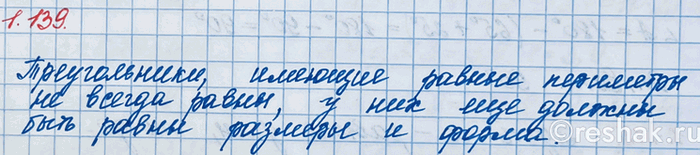 1.139.
Треугольники, имеющие равные периметры
не всегда равны, у них еще должны
быть равны размеры и форма.
reshak.ru